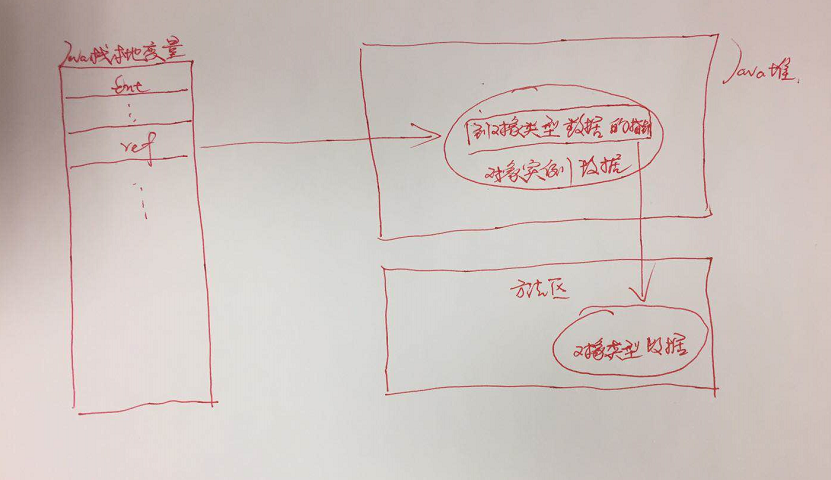 Java栈本地变量
int
ref
Java堆
到对象类型数据的指针
对象实例数据
方法区
对象类型数据